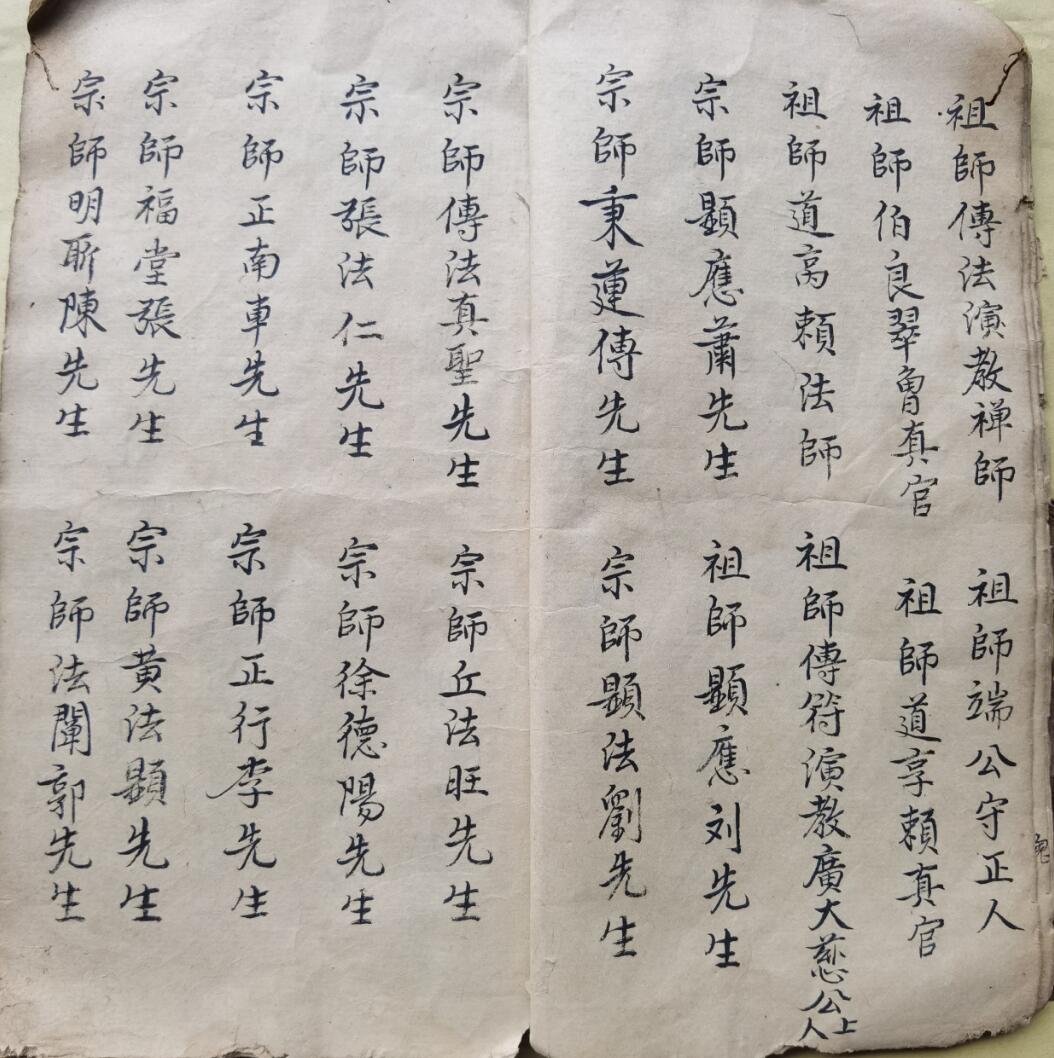 祖師傳法演教禅師
祖師端公守正人
祖師伯良翠魯真官
祖師道享賴真官
祖師道高賴法師
祖師傳符演教廣大慈公上人
宗師顕應蕭先生
祖師顕應刘先生
宗師秉蓮傳先生
宗師顕法劉先生
宗師傳法真聖先生
宗師丘法旺先生
宗師張法仁先生
宗師徐德陽先生
宗師正南車先生
宗師正行李先生
宗師福堂張先生
宗師黄法顕先生
宗師明陳先生
宗師法闡郭先生